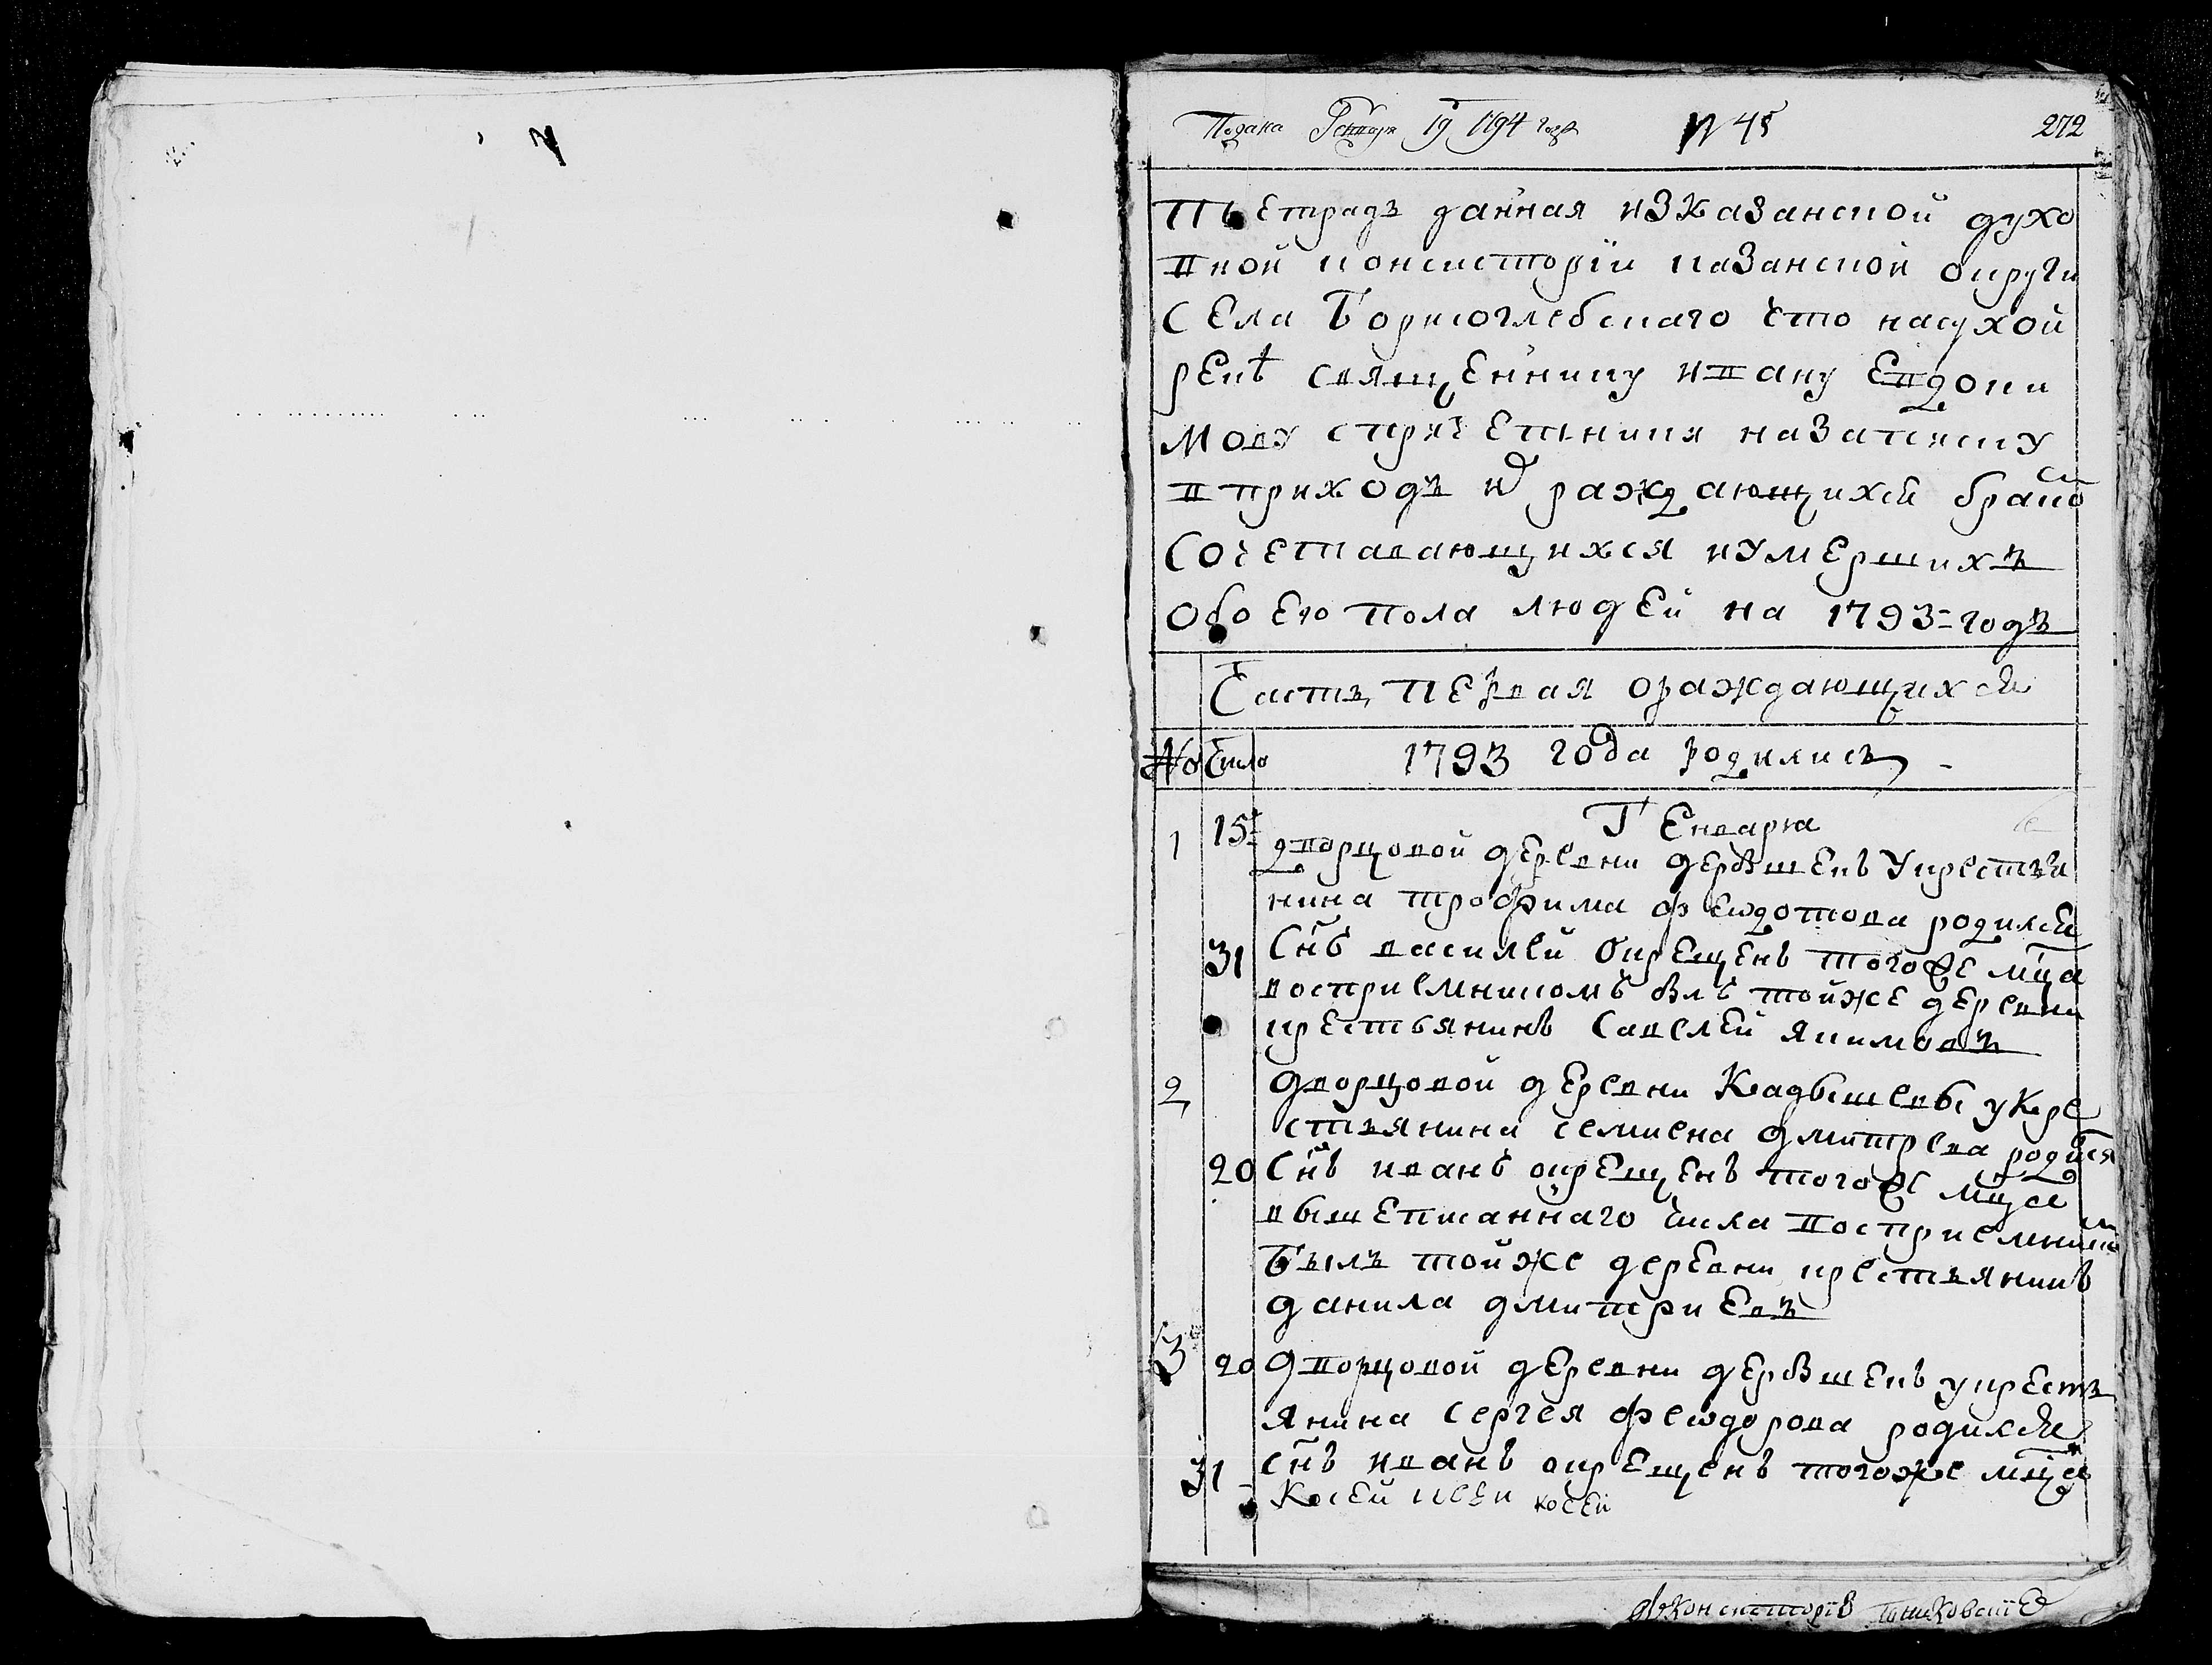 Подана Генваря 19 1794 года № 45 272
Тьетрадъ данная изказанской духо
вной консисторіи казанской округи
села Борисоглебскаго что насухой
рекѣ священнику ивану Евдоки
мову спричетники назаписку
вприходъ ѡ раждающихся брако
сочетавающихся иумершихъ
обоего пола людей на 1793= годъ
Часть первая ораждающихся
No Число 1793 года родились -
Генваря
1 15 дворцовой деревни дербышекъ Укрестья
нина трофима феѡдотова родился
31 Снъ василей окрещенъ тогоже мца
восприемникомъ былъ тойже деревни
крестьянинъ савелей якимовъ
2 дворцовой деревни Кадышевы укре
стьянина семиена дмитрева родися
20 Снъ иванъ окрещенъ тогоже мца
вышеписаннаго числа восприемником
Былъ тойже деревни крестьянинъ
данила дмитриевъ
3 20 Дворцовой деревни дербышекъ укресть
янина Сергея феѡдорова родился
31 - снъ иванъ окрещенъ тогоже мца
косей
консисторіи